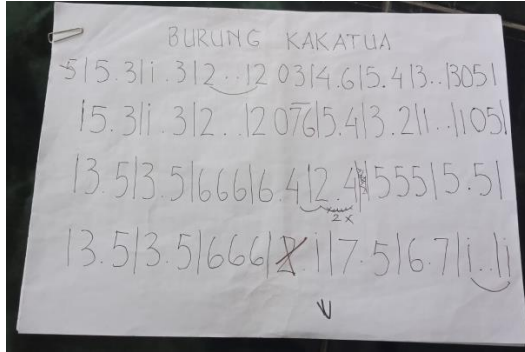 BURUNG KAKATUA
5|5.3|i.3|2..|2 03|4.6|5.4|3..|305|
|5.3|i.3|2..|2 076|5.4|3.2|1..|105|
|3.5|3.5|666|6.4|2.4||555|5.5|
2x
|3.5|3.5|666| i|7.5|6.7|i..|i